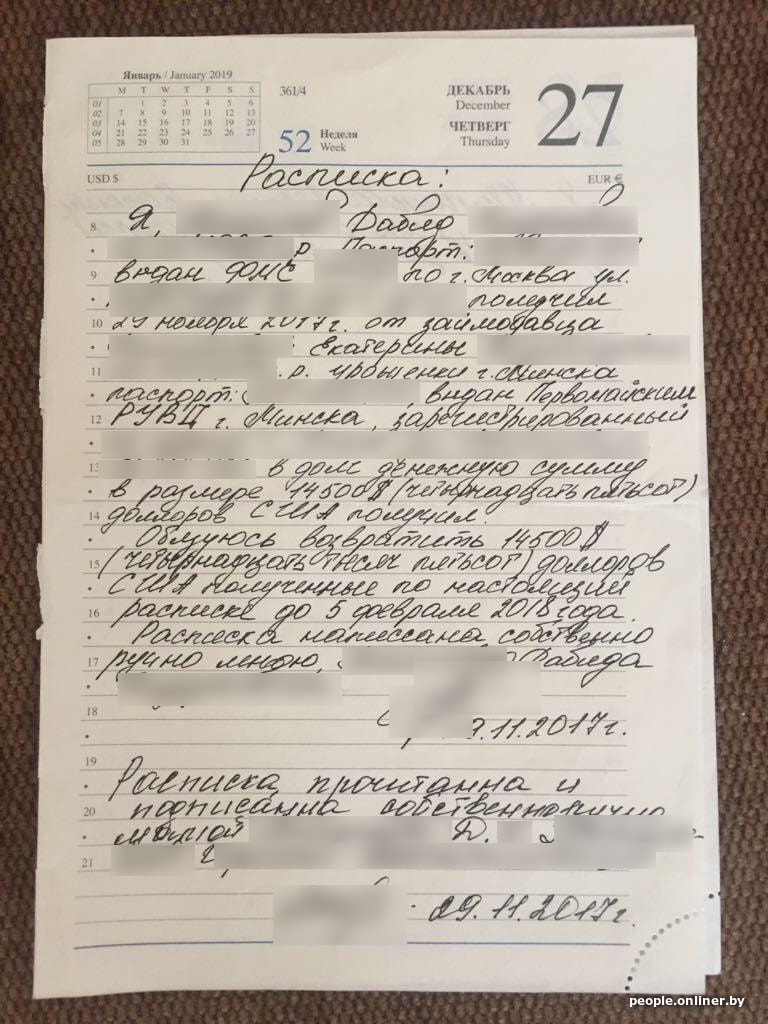 Январь / January 2019
M T W T F S S
01 1 2 3 4 5 6
02 7 8 9 10 11 12 13
03 14 15 16 17 18 19 20
04 21 22 23 24 25 26 27
05 28 29 30 31
361/4
52 Неделя
Week
ДЕКАБРЬ
December
ЧЕТВЕРГ
Thursday
27
USD $
EUR €
Расписка:
8 Я, Давид
р. Паспорт:
9 выдан ФМС по г. Москва ул.
получил
10 29 ноября 2017г. от займодавца
Екатерины
11 .р. урошенки г. Минска
паспорт: , выдан Первомайским
12 РУВД г. Минска, зарегистрированный
13 в долг денежную сумму
в размере 14500$ (четырнадцать пятьсот)
14 долларов США получил.
Обязуюсь возвратить 14500$
15 (четырнадцать тысяч пятьсот) долларов
США полученные по настоящей
16 расписке до 5 февраля 2018 года.
Расписка написсана собственно
17 ручно мною, Давида
18
9.11.2017г.
19
Расписка прочитанна и
20 подписанна собственноручно
мной Д.
21
29.11.2017г.
people.onliner.by